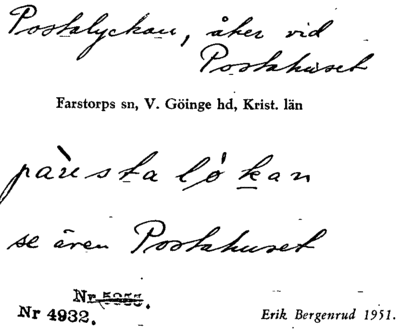 Postalyckan, åker vid
Postahuset
Farstorps sn, V. Göinge hd, Krist. län
se även Postahuset
Nr
Nr 4932.
Erik Bergenrud 1951.